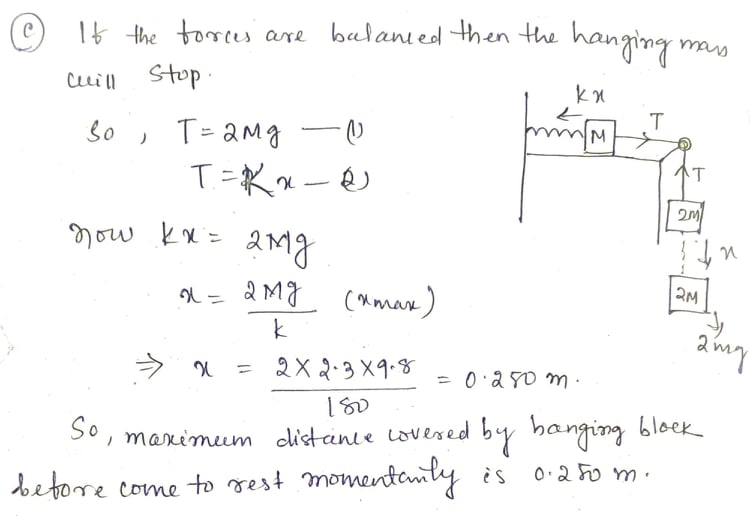 (c) If the forces are balanced then the hanging mass
will stop.
So, T = 2Mg — (1)
T = Kx — (2)
Now kx = 2Mg
x = 2Mg / k (xmax)
⇒ x = 2 X 2.3 X 9.8 / 180 = 0.250 m.
So, maximum distance covered by hanging block
before come to rest momentarily is 0.250 m.
kx
M
T
T
2M
x
2M
2mg